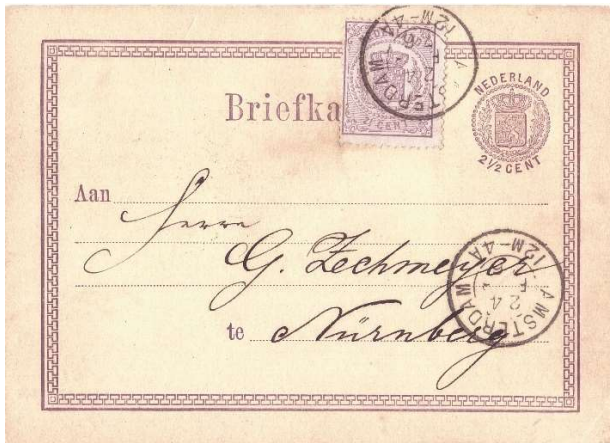 Briefka
2½ CENT
AMSTERDAM
24 F
12M-4A
NEDERLAND
2½ CENT
Aan Herrn
G. Zechmeyer
te Nürnberg
AMSTERDAM
24 F
12M-4A